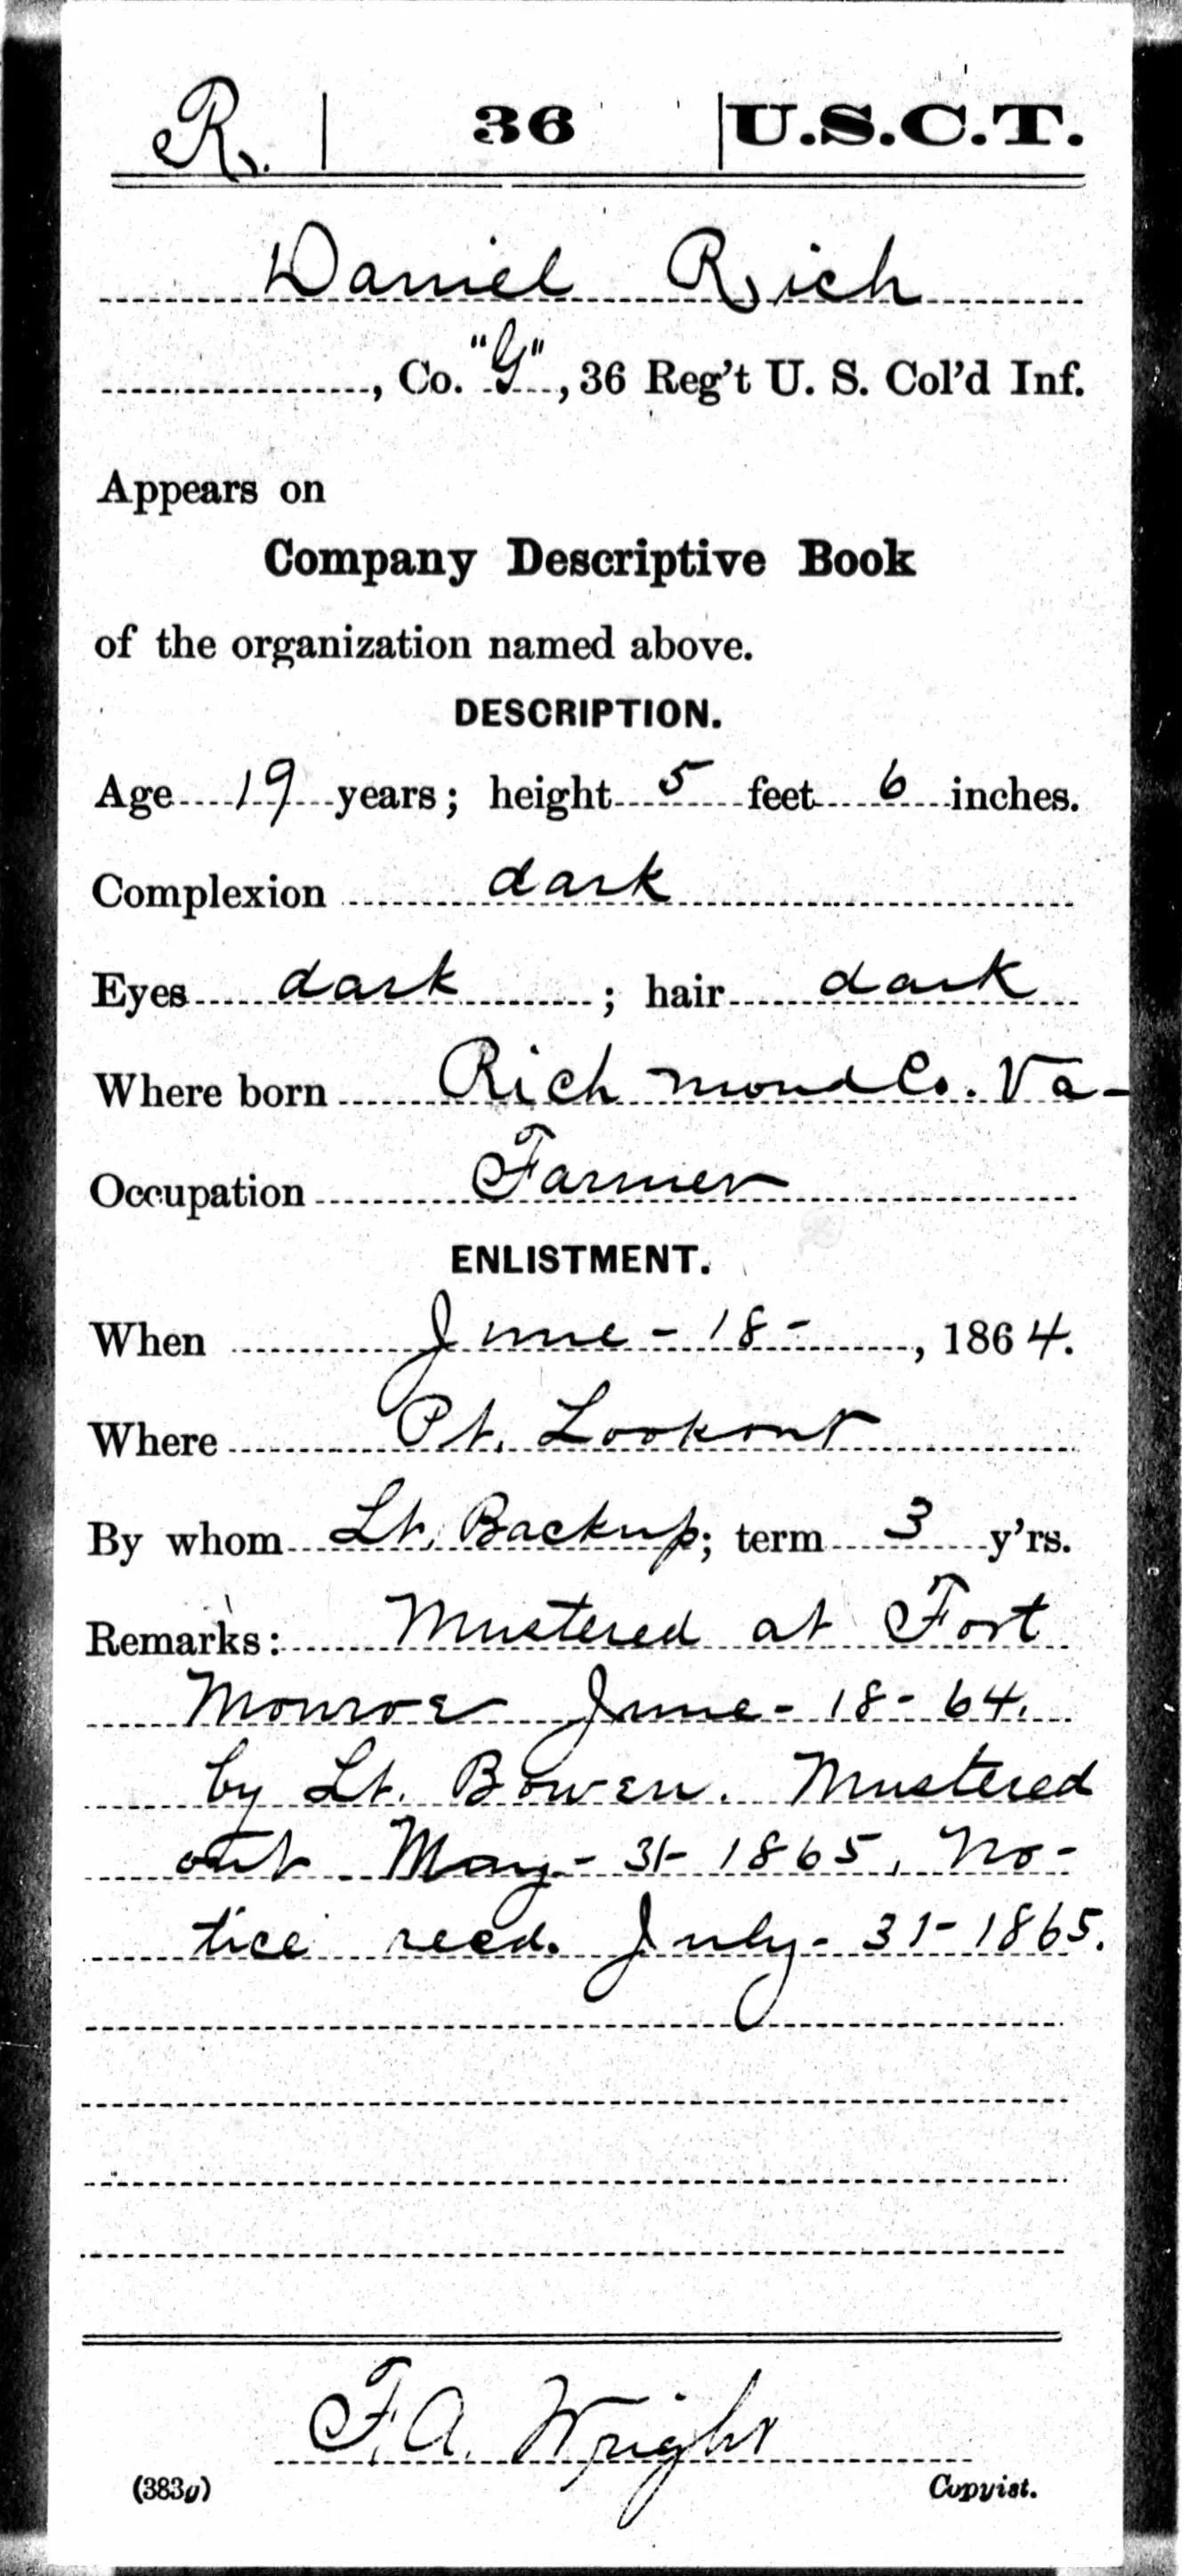 R. 36 U.S.C.T.
Daniel Rich
, Co. "G", 36 Reg't U. S. Col'd Inf.
Appears on
Company Descriptive Book
of the organization named above.
DESCRIPTION.
Age 19 years; height 5 feet 6 inches.
Complexion dark
Eyes dark; hair dark
Where born Richmond Co. Va-
Occupation Farmer
ENLISTMENT.
When June - 18 -, 1864.
Where Pt. Lookout
By whom Lt. Backup; term 3 y'rs.
Remarks: Mustered at Fort
Monroe June - 18 - 64.
by Lt. Bowen. Mustered
out May - 31 - 1865, No-
tice recd. July - 31 - 1865.
F.A. Wright
(383g) Copyist.